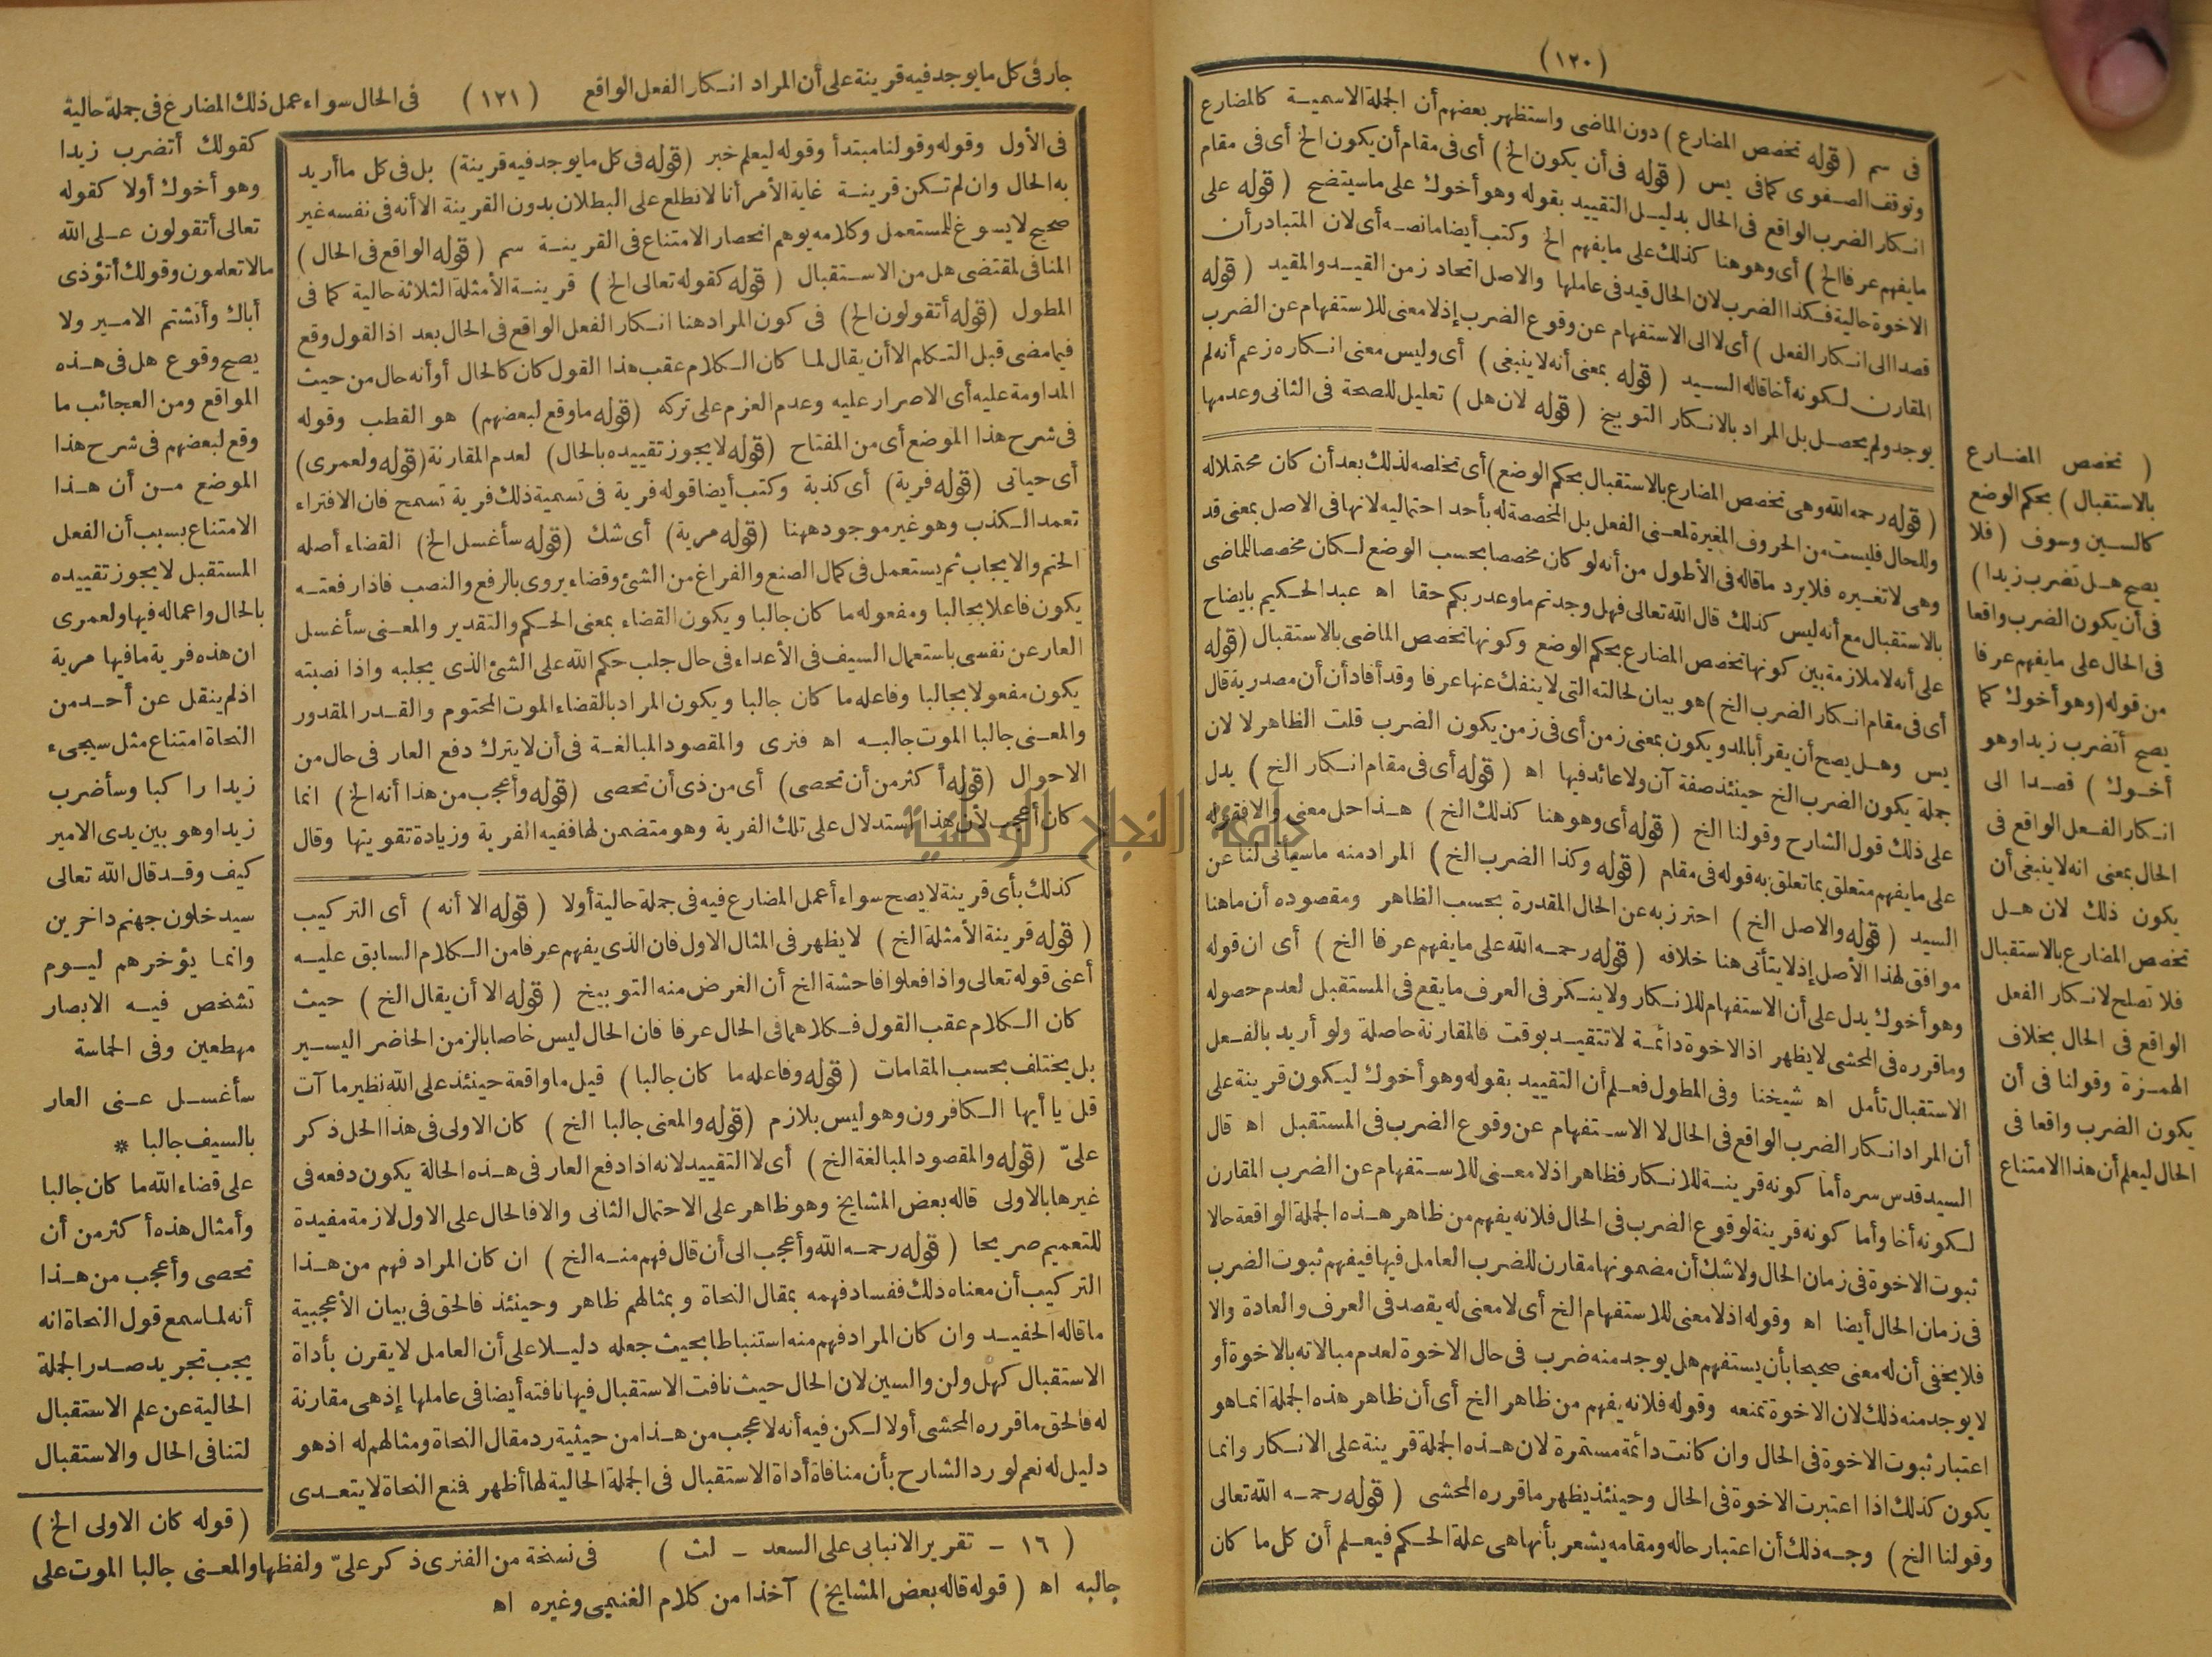 (١٢٠)
فى سم (قوله تخصص المضارع) دون الماضى واستظهر بعضهم أن الجملة الاسمية كالمضارع
وتوقف الصفوى كمافى يس (قوله فى أن يكون الخ) أى فى مقام أن يكون الخ أى فى مقام
انكار الضرب الواقع فى الحال بدليل التقييد بقوله وهو أخوك على ماسيتضح (قوله على
مايفهم عرفا الخ) أى وهو هنا كذلك على مايفهم الخ وكتب أيضا مانصه أى لان المتبادر أن
الاخوة حالية فكذا الضرب لان الحال قيد فى عاملها والاصل اتحاد زمن القيد والمقيد (قوله
قصدا الى انكار الفعل) أى لا الى الاستفهام عن وقوع الضرب إذ لامعنى للاستفهام عن الضرب
المقارن لكونه أخا قاله السيد (قوله بمعنى أنه لاينبغى) أى وليس معنى انكاره زعم أنه لم
يوجد ولم يحصل بل المراد بالانكار التوبيخ (قوله لان هل) تعليل للصحة فى الثانى وعدمها
(قوله رحمه الله وهى تخصص المضارع بالاستقبال بحكم الوضع) أى تخلصه لذلك بعد أن كان محتملا له
وللحال فليست من الحروف المغيرة لمعنى الفعل بل المخصصة له بأحد احتماليه لانها فى الاصل بمعنى قد
وهى لاتغيره فلا يرد ماقاله فى الأطول من أنه لو كان مخصصا بحسب الوضع لكان مخصصا للماضى
بالاستقبال مع أنه ليس كذلك قال الله تعالى فهل وجدتم ماوعد ربكم حقا اه عبد الحكيم بايضاح
على أنه لاملازمة بين كونها تخصص المضارع بحكم الوضع وكونها تخصص الماضى بالاستقبال (قوله
أى فى مقام انكار الضرب الخ) هو بيان لحالته التى لاينفك عنها عرفا وقد أفاد أن أن مصدرية قال
يس وهل يصح أن يقرأ بالمد ويكون بمعنى زمن أى فى زمن يكون الضرب قلت الظاهر لا لان
جملة يكون الضرب الخ حينئذ صفة آن ولا عائد فيها اه (قوله أى فى مقام انكار الخ) يدل
على ذلك قول الشارح وقولنا الخ (قوله أى وهو هنا كذلك الخ) هذا حل معنى والا فقوله
على مايفهم متعلق بما تعلق به قوله فى مقام (قوله وكذا الضرب الخ) المراد منه ماسيأتى لنا عن
السيد (قوله والاصل الخ) احترز به عن الحال المقدرة بحسب الظاهر ومقصوده أن ماهنا
موافق لهذا الأصل إذ لايتأتى هنا خلافه (قوله رحمه الله على مايفهم عرفا الخ) أى ان قوله
وهو أخوك يدل على أن الاستفهام للانكار ولا ينكر فى العرف مايقع فى المستقبل لعدم حصوله
وماقرره فى المحشى لايظهر اذ الاخوة دائمة لاتتقيد بوقت فالمقارنة حاصلة ولو أريد بالفعل
الاستقبال تأمل اه شيخنا وفى المطول فعلم أن التقييد بقوله وهو أخوك ليكون قرينة على
أن المراد انكار الضرب الواقع فى الحال لا الاستفهام عن وقوع الضرب فى المستقبل اه قال
السيد قدس سره أما كونه قرينة للانكار فظاهر اذ لامعنى للاستفهام عن الضرب المقارن
لكونه أخا وأما كونه قرينة لوقوع الضرب فى الحال فلانه يفهم من ظاهر هذه الجملة الواقعة حالا
ثبوت الاخوة فى زمان الحال ولا شك أن مضمونها مقارن للضرب العامل فيها فيفهم ثبوت الضرب
فى زمان الحال أيضا اه وقوله اذ لامعنى للاستفهام الخ أى لامعنى له يقصد فى العرف والعادة والا
فلا يخفى أن له معنى صحيحا بأن يستفهم هل يوجد منه ضرب فى حال الاخوة لعدم مبالاته بالاخوة أو
لا يوجد منه ذلك لان الاخوة تمنعه وقوله فلانه يفهم من ظاهر الخ أى أن ظاهر هذه الجملة انما هو
اعتبار ثبوت الاخوة فى الحال وان كانت دائمة مستمرة لان هذه الجملة قرينة على الانكار وانما
يكون كذلك اذا اعتبرت الاخوة فى الحال وحينئذ يظهر ماقرره المحشى (قوله رحمه الله تعالى
وقولنا الخ) وجه ذلك أن اعتبار حاله ومقامه يشعر بأنها هى علة الحكم فيعلم أن كل ما كان
(تخصص المضارع
بالاستقبال) بحكم الوضع
كالسين وسوف (فلا
يصح هل تضرب زيدا)
فى أن يكون الضرب واقعا
فى الحال على مايفهم عرفا
من قوله (وهو أخوك كما
يصح أتضرب زيدا وهو
أخوك) قصدا الى
انكار الفعل الواقع فى
الحال بمعنى انه لاينبغى أن
يكون ذلك لان هل
تخصص المضارع بالاستقبال
فلا تصلح لانكار الفعل
الواقع فى الحال بخلاف
الهمزة وقولنا فى أن
يكون الضرب واقعا فى
الحال ليعلم أن هذا الامتناع
جار فى كل مايوجد فيه قرينة على أن المراد انكار الفعل الواقع (١٢١) فى الحال سواء عمل ذلك المضارع فى جملة حالية
فى الأول وقوله وقولنا مبتدأ وقوله ليعلم خبر (قوله فى كل مايوجد فيه قرينة) بل فى كل ماأريد
به الحال وان لم تكن قرينة غاية الأمر أنا لانطلع على البطلان بدون القرينة الا أنه فى نفسه غير
صحيح لايسوغ للمستعمل وكلامه يوهم انحصار الامتناع فى القرينة سم (قوله الواقع فى الحال)
المنافى لمقتضى هل من الاستقبال (قوله كقوله تعالى الخ) قرينة الأمثلة الثلاثة حالية كما فى
المطول (قوله أتقولون الخ) فى كون المراد هنا انكار الفعل الواقع فى الحال بعد اذ القول وقع
فيما مضى قبل التكلم الا أن يقال لما كان الكلام عقب هذا القول كان كالحال أو أنه حال من حيث
المداومة عليه أى الاصرار عليه وعدم العزم على تركه (قوله ماوقع لبعضهم) هو القطب وقوله
فى شرح هذا الموضع أى من المفتاح (قوله لا يجوز تقييده بالحال) لعدم المقارنة (قوله ولعمرى)
أى حياتى (قوله فرية) أى كذبة وكتب أيضا قوله فرية فى تسمية ذلك فرية تسمح فان الافتراء
تعمد الكذب وهو غير موجود ههنا (قوله مرية) أى شك (قوله سأغسل الخ) القضاء أصله
الحتم والايجاب ثم يستعمل فى كمال الصنع والفراغ من الشئ وقضاء يروى بالرفع والنصب فاذا رفعته
يكون فاعلا بجالبا ومفعوله ما كان جالبا ويكون القضاء بمعنى الحكم والتقدير والمعنى سأغسل
العار عن نفسى باستعمال السيف فى الأعداء فى حال جلب حكم الله على الشئ الذى يجلبه واذا نصبته
يكون مفعولا بجالبا وفاعله ما كان جالبا ويكون المراد بالقضاء الموت المحتوم والقدر المقدور
والمعنى جالبا الموت جالبه اه فنرى والمقصود المبالغة فى أن لايترك دفع العار فى حال من
الاحوال (قوله أكثر من أن تحصى) أى من ذى أن تحصى (قوله وأعجب من هذا أنه الخ) انما
كان أعجب لأن هذا استدلال على تلك الفرية وهو متضمن لها ففيه الفرية وزيادة تقويتها وقال
جامعة النجاح الوطنية
كذلك بأى قرينة لايصح سواء أعمل المضارع فيه فى جملة حالية أولا (قوله الا أنه) أى التركيب
(قوله قرينة الأمثلة الخ) لايظهر فى المثال الاول فان الذى يفهم عرفا من الكلام السابق عليه
أعنى قوله تعالى واذا فعلوا فاحشة الخ أن الغرض منه التوبيخ (قوله الا أن يقال الخ) حيث
كان الكلام عقب القول فكلاهما فى الحال عرفا فان الحال ليس خاصا بالزمن الحاضر اليسير
بل يختلف بحسب المقامات (قوله وفاعله ما كان جالبا) قيل ماواقعة حينئذ على الله نظير ما آت
قل يا أيها الكافرون وهو ليس بلازم (قوله والمعنى جالبا الخ) كان الاولى فى هذا الحل ذكر
علىّ (قوله والمقصود المبالغة الخ) أى لا التقييد لانه اذا دفع العار فى هذه الحالة يكون دفعه فى
غيرها بالاولى قاله بعض المشايخ وهو ظاهر على الاحتمال الثانى والا فالحال على الاول لازمة مفيدة
للتعميم صريحا (قوله رحمه الله وأعجب الى أن قال فهم منه الخ) ان كان المراد فهم من هذا
التركيب أن معناه ذلك ففساد فهمه بمقال النحاة وبمثالهم ظاهر وحينئذ فالحق فى بيان الأعجبية
ماقاله الحفيد وان كان المراد فهم منه استنباطا بحيث جعله دليلا على أن العامل لايقرن بأداة
الاستقبال كهل ولن والسين لان الحال حيث نافت الاستقبال فيها نافته أيضا فى عاملها إذ هى مقارنة
له فالحق ماقرره المحشى أولا لكن فيه أنه لاعجب من هذا من حيثية رد مقال النحاة ومثالهم له اذ هو
دليل له نعم لو رد الشارح بأن منافاة أداة الاستقبال فى الجملة الحالية لها أظهر فمنع النحاة لايتعدى
كقولك أتضرب زيدا
وهو أخوك أولا كقوله
تعالى أتقولون على الله
مالا تعلمون وقولك أتؤذى
أباك وأتشتم الامير ولا
يصح وقوع هل فى هذه
المواقع ومن العجائب ما
وقع لبعضهم فى شرح هذا
الموضع من أن هذا
الامتناع بسبب أن الفعل
المستقبل لايجوز تقييده
بالحال واعماله فيها ولعمرى
ان هذه فرية مافيها مرية
اذ لم ينقل عن أحد من
النحاة امتناع مثل سيجىء
زيدا راكبا وسأضرب
زيدا وهو بين يدى الامير
كيف وقد قال الله تعالى
سيدخلون جهنم داخرين
وانما يؤخرهم ليوم
تشخص فيه الابصار
مهطعين وفى الحماسة
سأغسل عنى العار
بالسيف جالبا *
على قضاء الله ما كان جالبا
وأمثال هذه أكثر من أن
تحصى وأعجب من هذا
أنه لما سمع قول النحاة انه
يجب تجريد صدر الجملة
الحالية عن علم الاستقبال
لتنافى الحال والاستقبال
(١٦ - تقرير الانبابى على السعد - لث)
(قوله كان الاولى الخ)
فى نسخة من الفنرى ذكر علىّ ولفظها والمعنى جالبا الموت على
جالبه اه (قوله قاله بعض المشايخ) آخذا من كلام الغنيمى وغيره اه